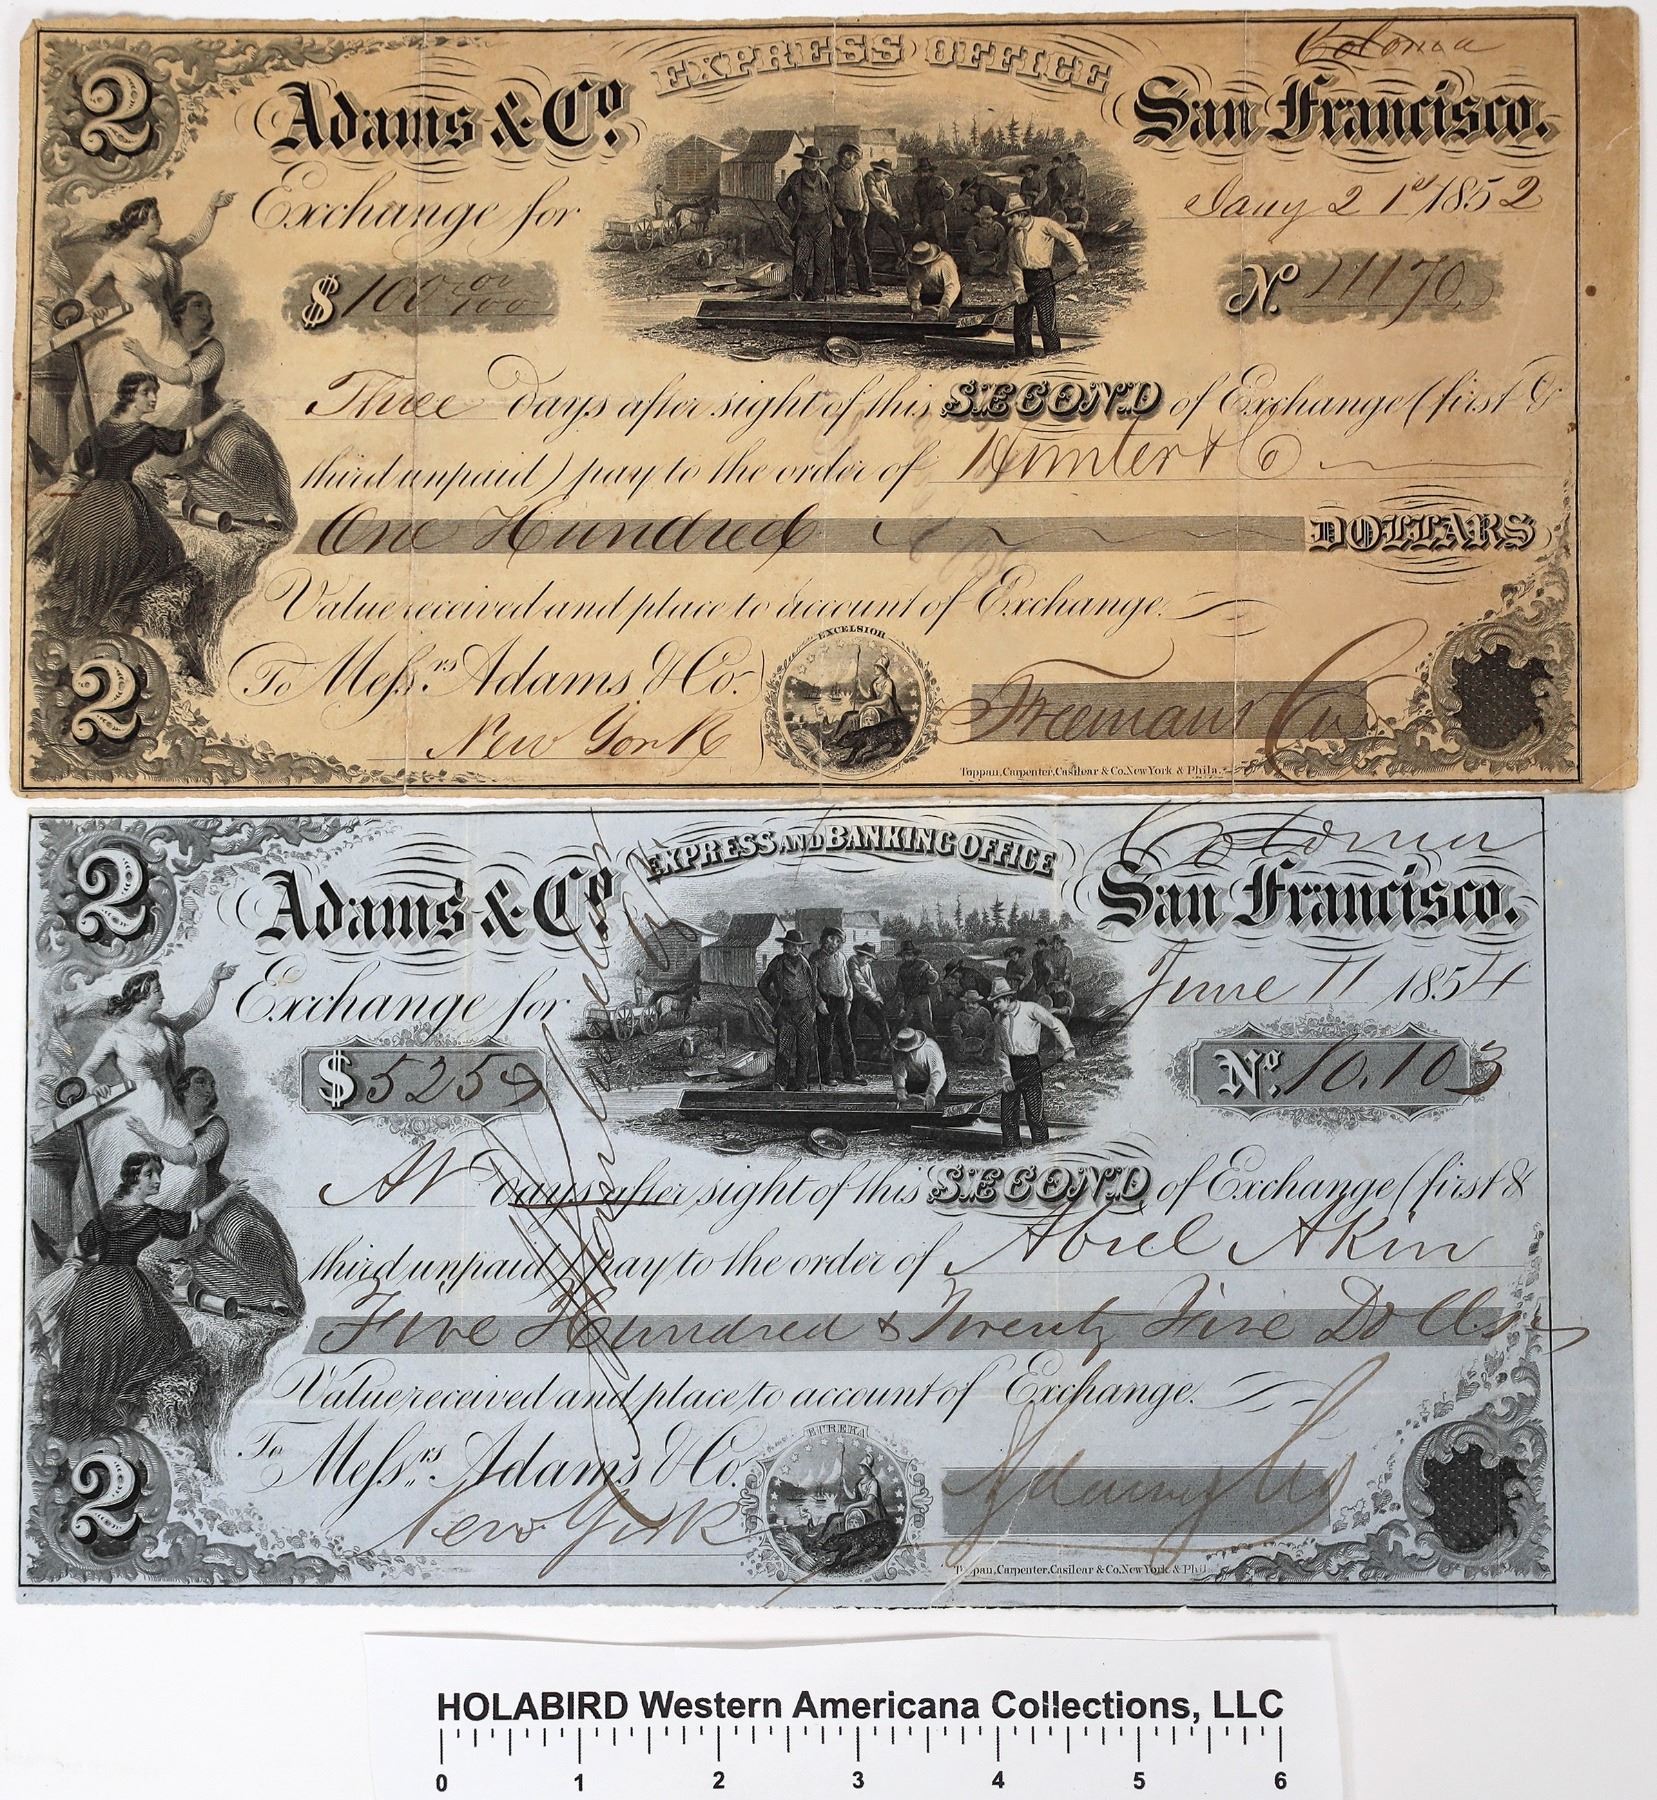 2
EXPRESS OFFICE
Coloma
Adams & Co.
San Francisco.
Exchange for
Jany 21st 1852
$ 100 00/100
No. 11170
Three days after sight of this SECOND of Exchange (first &
third unpaid) pay to the order of Hunter & Co
One Hundred DOLLARS
Value received and place to account of Exchange.
EXCELSIOR
2
To Messrs. Adams & Co.
New York
Freeman & Co
Toppan, Carpenter, Casilear & Co. New York & Phila.
2
EXPRESS AND BANKING OFFICE
Coloma
Adams & Co.
San Francisco.
Exchange for
June 11 1854
$ 525
No. 10.103
At Days after sight of this SECOND of Exchange (first &
third unpaid) pay to the order of Abiel Akin
Five Hundred & Twenty Five Dolls
Value received and place to account of Exchange.
EUREKA
2
To Messrs. Adams & Co.
New York
Adams & Co
Toppan, Carpenter, Casilear & Co. New York & Phil
HOLABIRD Western Americana Collections, LLC
0 1 2 3 4 5 6